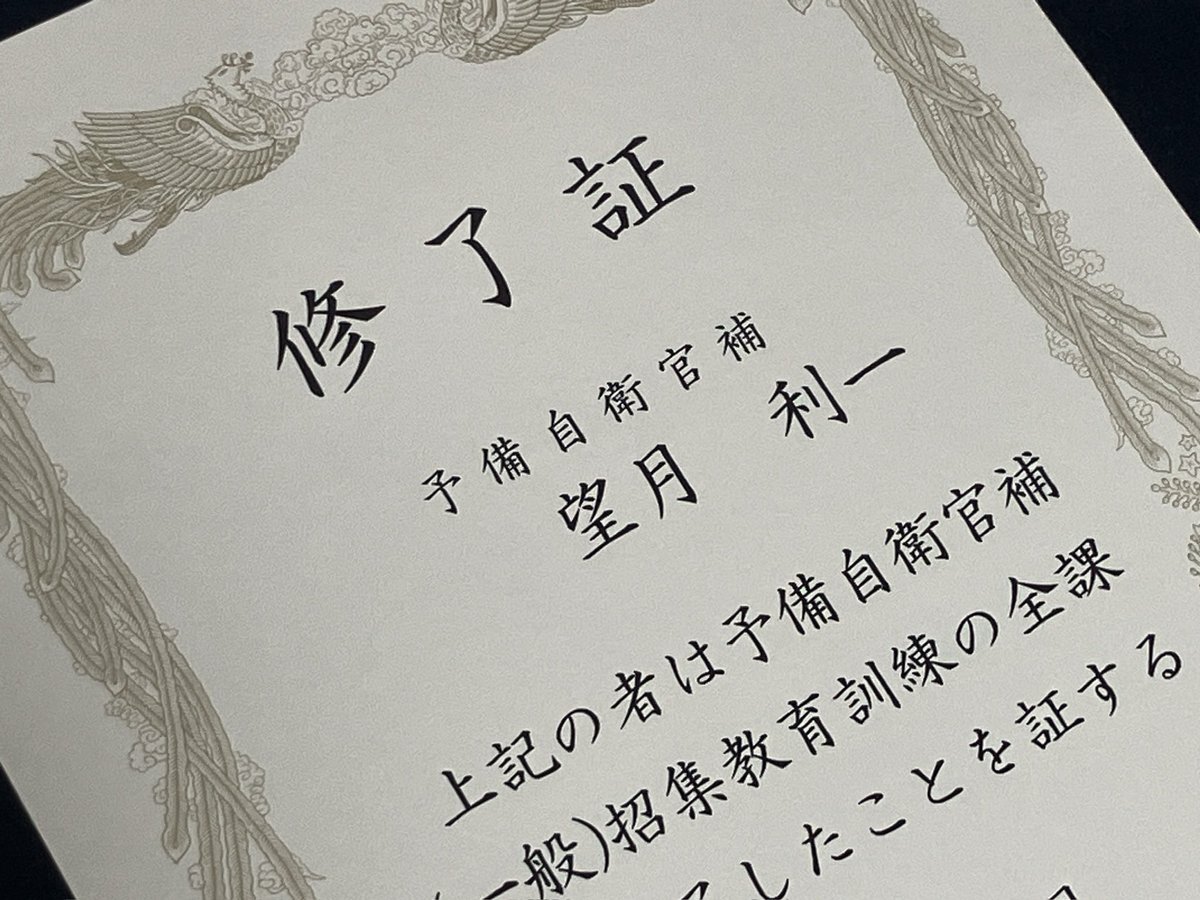 修了証
予備自衛官補
望月 利一
上記の者は予備自衛官補
(一般)招集教育訓練の全課
了したことを証する